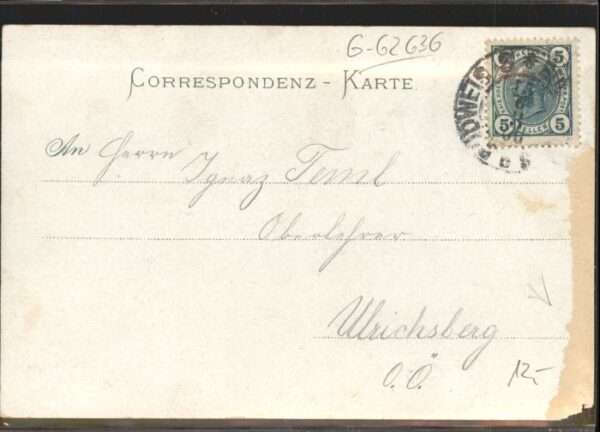 G-62636
CORRESPONDENZ-KARTE
5 5
5 HELLER 5
An Herrn Ignaz Teml
Oberlehrer
Ulrichsberg
O.Ö.
12.-